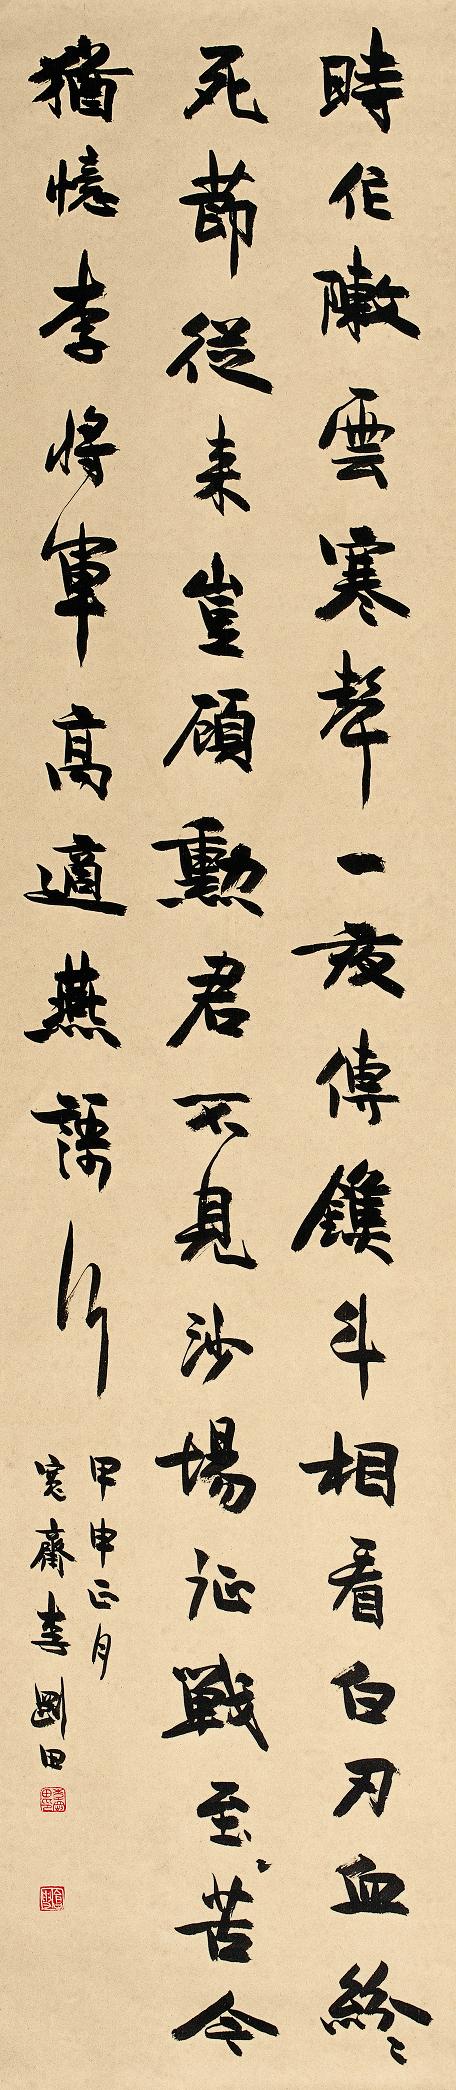 時作敶雲寒聲一夜傳鐎斗相看白刃血紛〻
死節從来豈顧勳君不見沙場征戰至苦今
猶憶李将軍高適燕謌行
甲申正月
寬齋李剛田